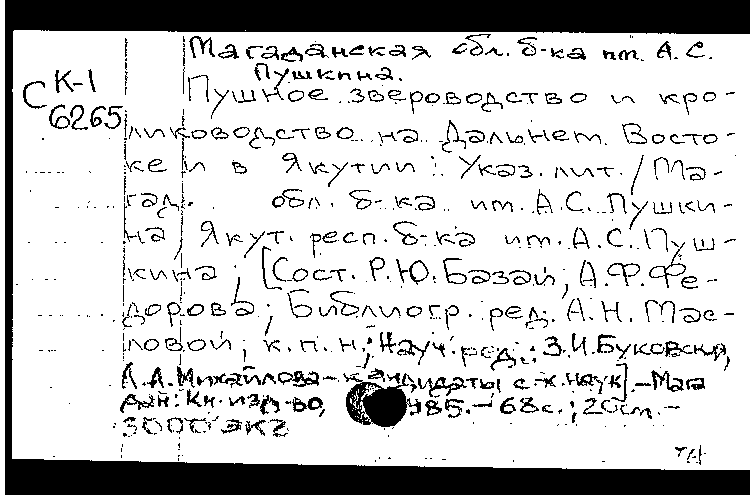 Магаданская обл. б-ка им. А.С.
Пушкина.
С К-1
6265
Пушное звероводство и кро-
лиководство на Дальнем Восто-
ке и в Якутии: Указ. лит. / Ма-
гад. обл. б-ка им. А.С. Пушки-
на, Якут. респ. б-ка им. А.С. Пуш-
кина; [Сост. Р.Ю. Базай, А.Ф. Фе-
дорова; Библиогр. ред. А.Н. Мас-
ловой, к.п.н.; Науч. ред.: З.И. Буковская,
А.А. Михайлова - кандидаты с-х. наук]. - Мага
дан: Кн. изд-во, 1985. - 68 с.; 20 см. -
3000 экз